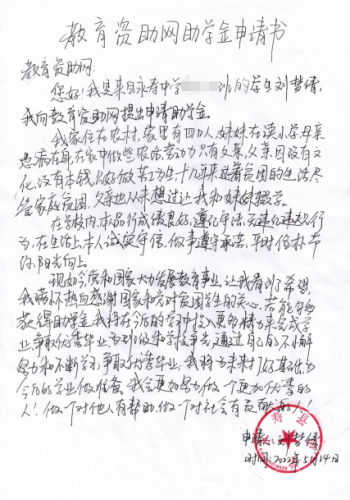 教育资助网助学金申请书
教育资助网:
您好!我是来自永寿中学 班的学生刘梦倩,
我向教育资助网提出申请助学金。
我家住在农村,家里有四口人,妹妹在读小学,母亲
患病在身,在家中做些农活,劳动力只有父亲,父亲因没有文
化,没有本钱,只好做苦工为生,十几年来过着贫困的生活,尽
管家庭贫困,父亲也从来想过让我和妹妹辍学。
在学校内,本人品行成绩良好,遵纪守法,无违纪违规行
为,在生活上本人诚实守信,做事遵守承诺,平时俭朴节
约,阳光向上。
现如今党和国家大力发展教育事业,让我看到了希望,
我满怀热向感谢国家和党对贫困学生的关心,若能够
获得助学金,我将在今后的学习中投入更的精力来完成学
业,争取优秀毕业,通过自己的不懈
努力和不断学习,争取优秀毕业,我将为未来打好基础,为
今后的学业做准备,我会更加努力做一个更加优秀的
人!做一个对他人有帮助,做一个对社会有贡献的人!
申请人:刘梦倩
时间:2022年5月14日